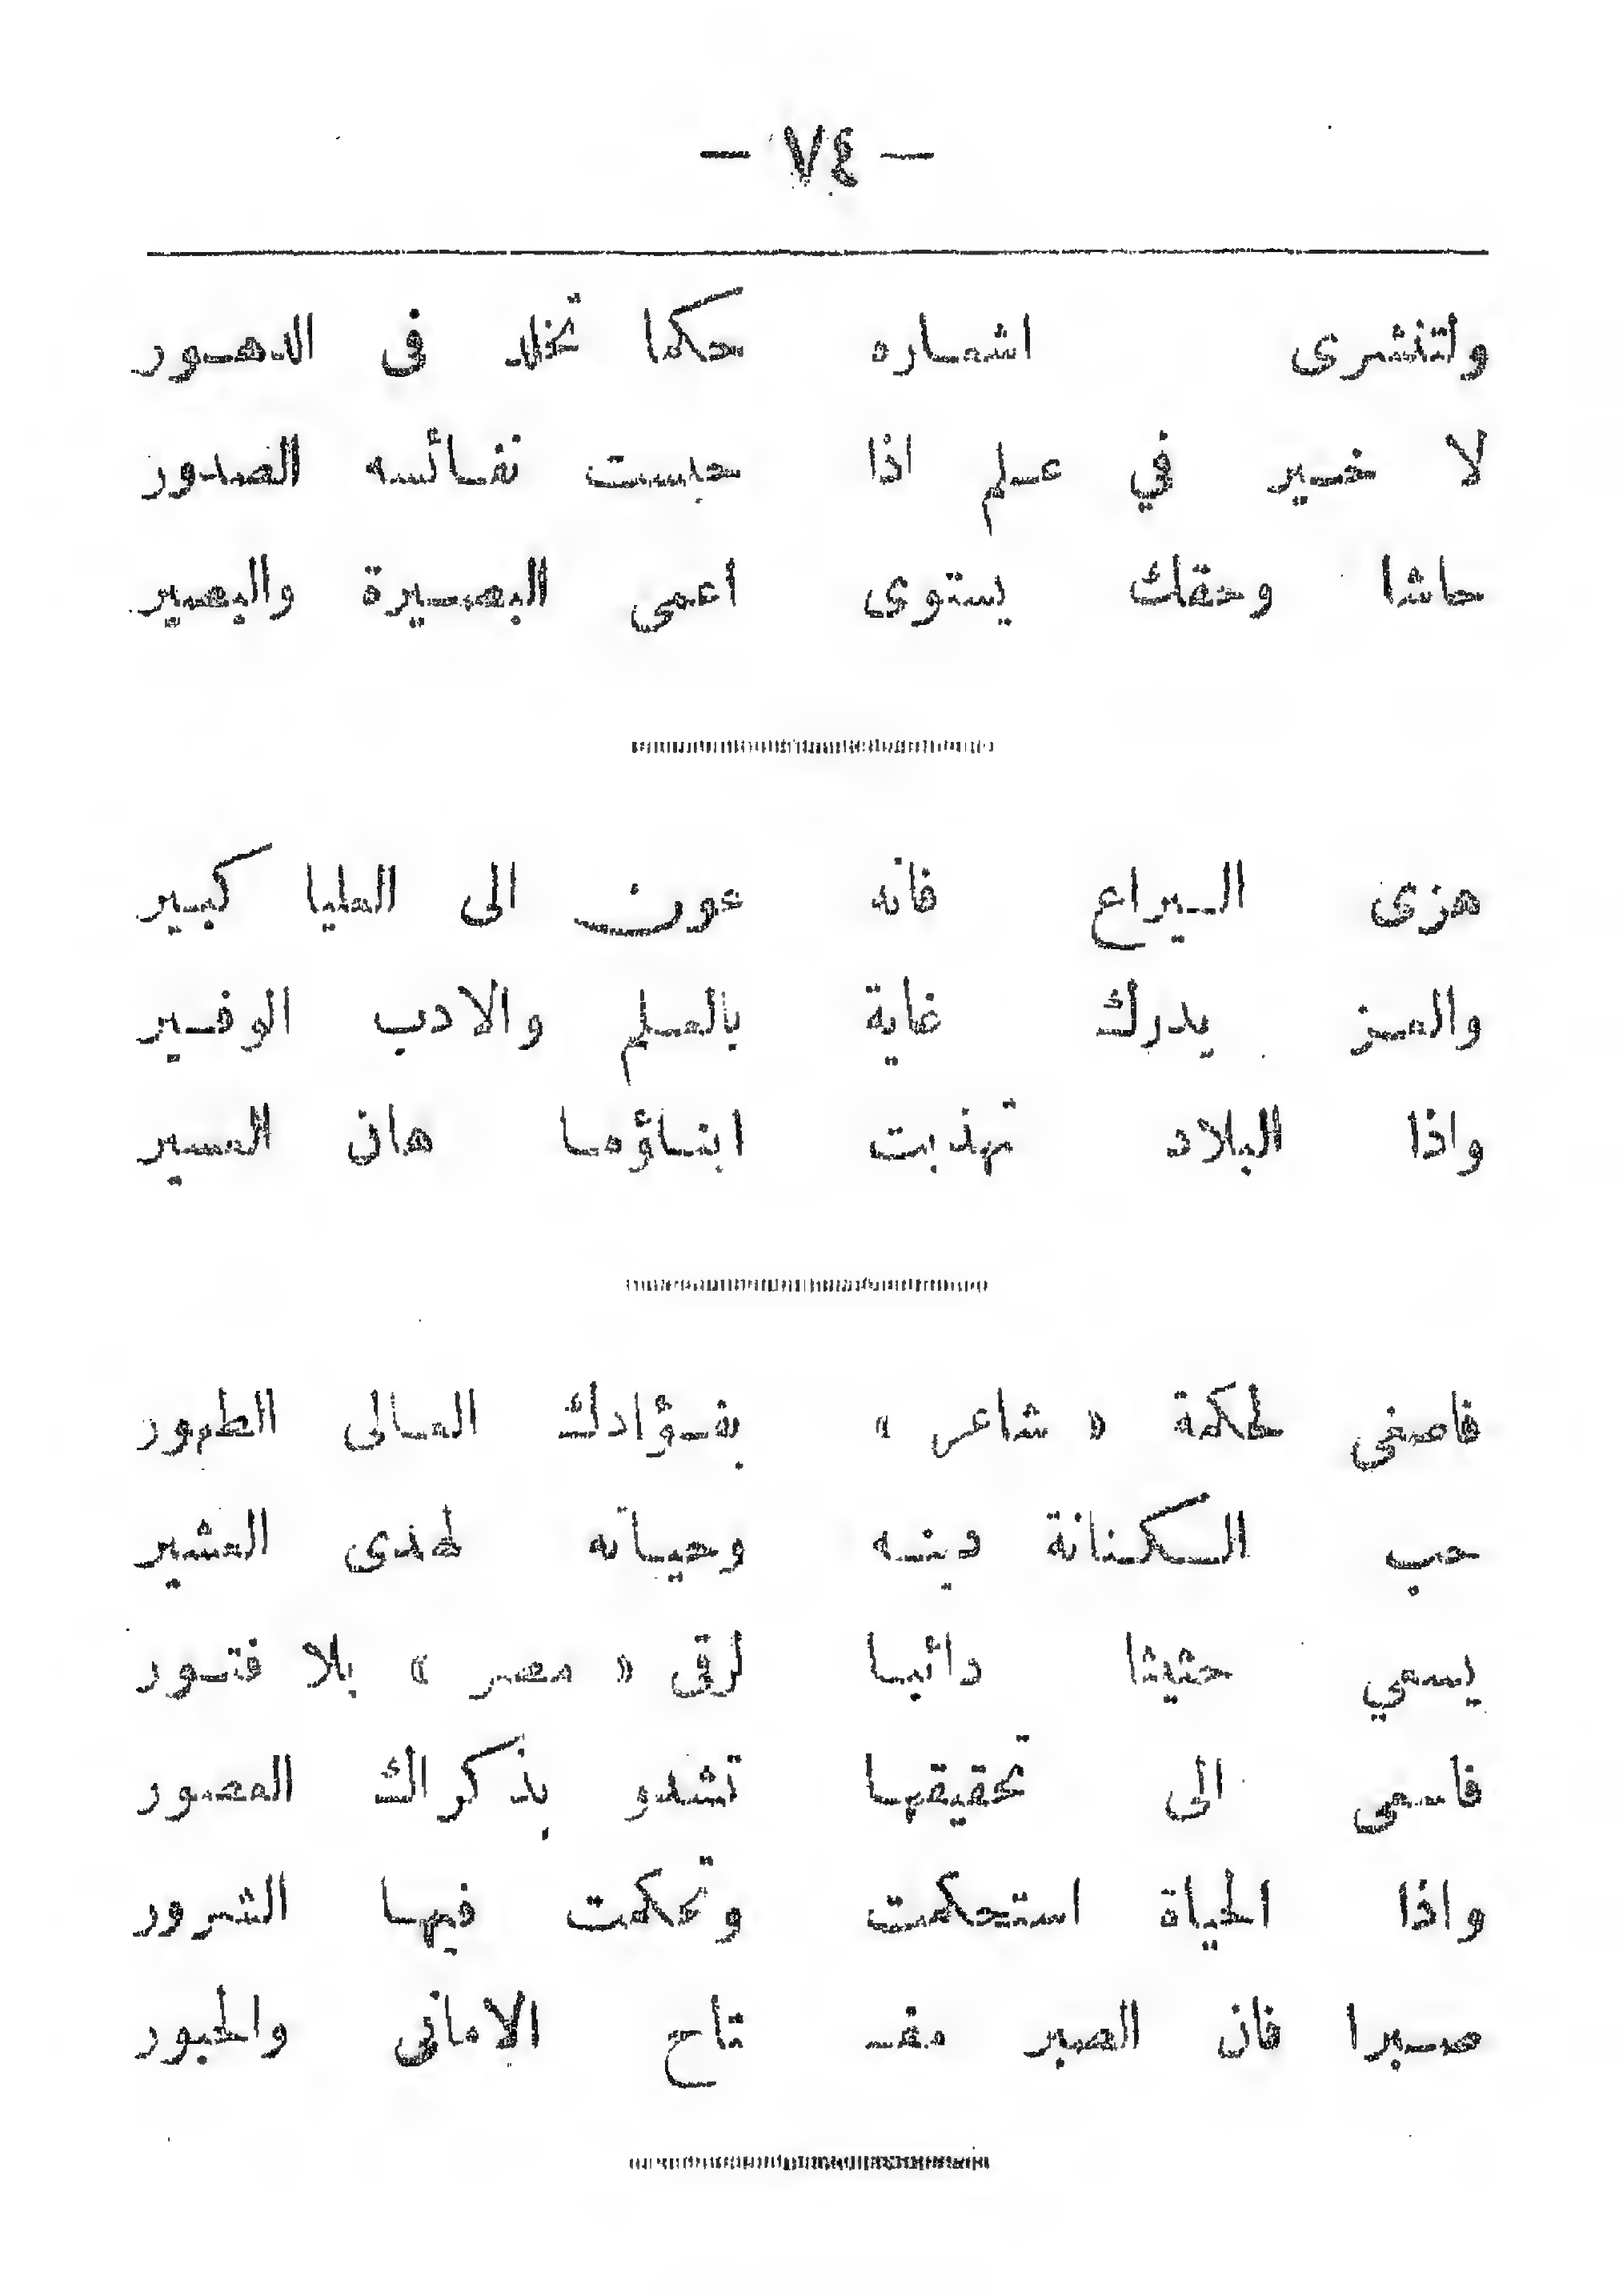 — ٧٤ —
ولتنشرى اشعاره حكما تخلد فى الدهـور
لا خـير في عـلم اذا حبست نفـائسه الصدور
حاشا وحقك يستوى اعمى البصـيرة والبصير
هزى الـيراع فانه عون الى العليا كبـير
والعـز يدرك غاية بالعـلم والادب الوفـير
واذا البلاد تهذبت ابنـاؤها هان العسير
فاصغى لحكمة « شاعر » بفـؤادك العـالى الطهور
حب الـكنانة دينـه وحيـاته لهدى العشير
يسعي حثيثا دائبـا لرقى « مصر » بلا فتـور
فاسعى الى تحقيقهـا تشدو بذكراك العصور
واذا الحياة استحكمت وتحكمت فيهـا الشرور
صـبرا فان الصبر مفـ تاح الامانى والحبور